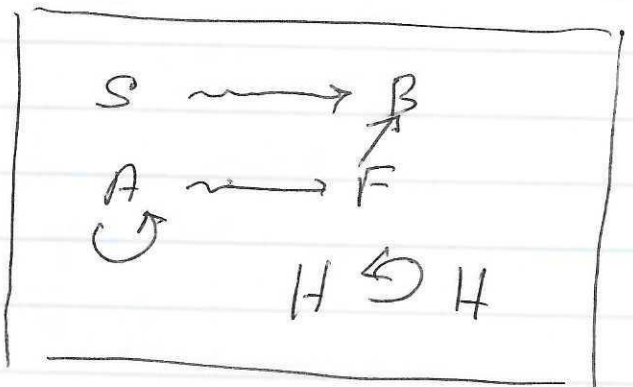 S B
A F
H H